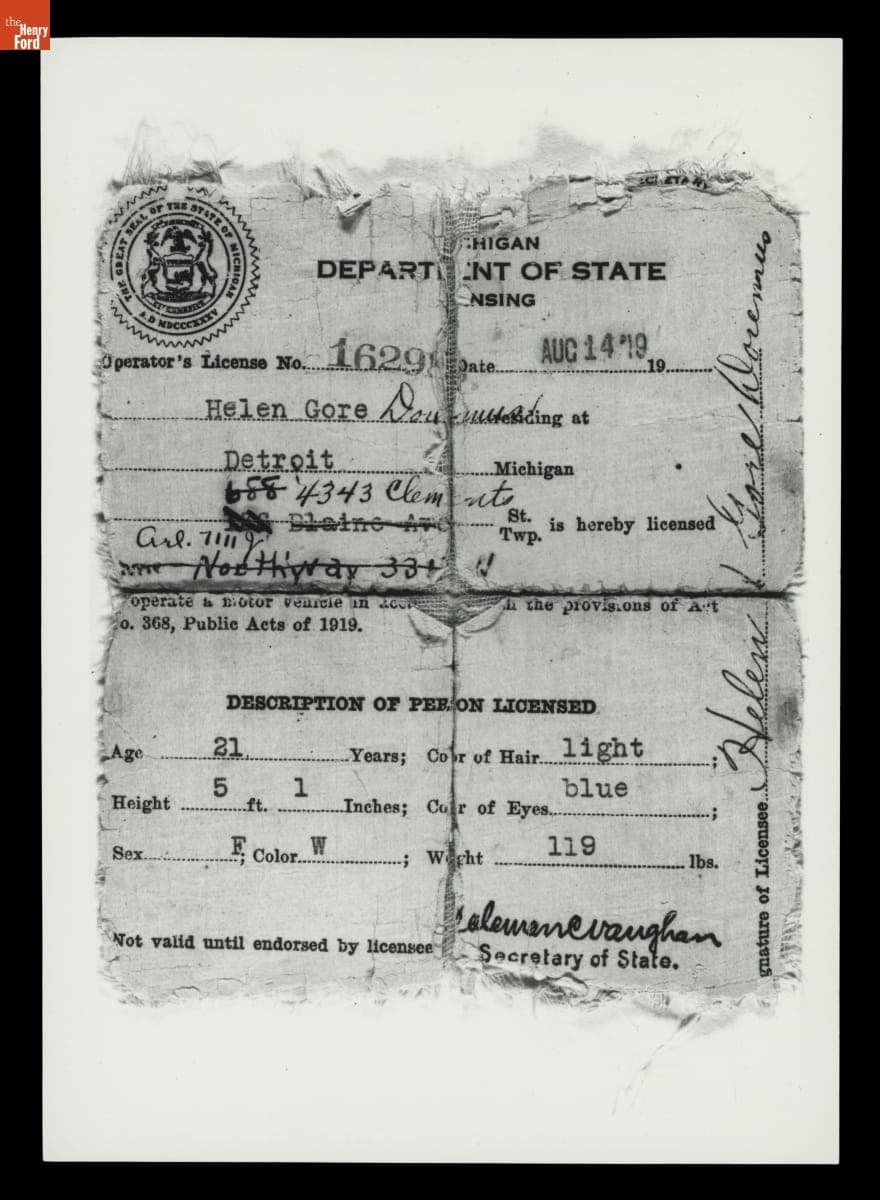 the
Henry
Ford
SECRETARY
THE GREAT SEAL OF THE STATE OF MICHIGAN
A.D. MDCCCXXXV
CHIGAN
DEPARTM ENT OF STATE
ENSING
Operator's License No. 1629 Date AUG 14 '19 19
Helen Gore Doremus residing at
Detroit Michigan
658 4343 Clements
Blaine Ave St. Twp. is hereby licensed
Arl. 7111 J
Northway 33
operate a motor vehicle in acc h the provisions of Act
o. 368, Public Acts of 1919.
DESCRIPTION OF PERSON LICENSED
Age 21 Years; Co r of Hair light ;
Height 5 ft. 1 Inches; Co r of Eyes blue ;
Sex F; Color W ; W ght 119 lbs.
Coleman C Vaughan
Not valid until endorsed by licensee
Secretary of State.
gnature of Licensee Helen Gore Doremus